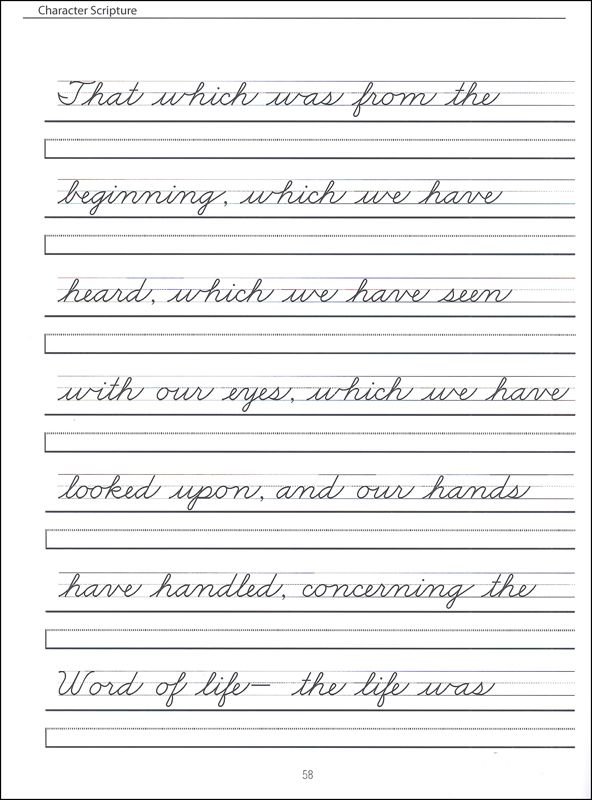 Character Scripture
That which was from the
beginning, which we have
heard, which we have seen
with our eyes, which we have
looked upon, and our hands
have handled, concerning the
Word of life— the life was
58